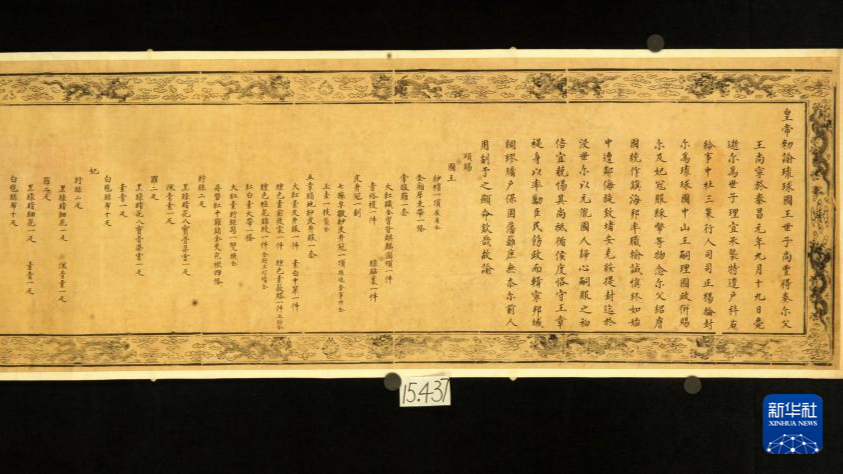 皇帝勑諭琉球國王世子尚豐得奏尔父
王尚寧於泰昌元年九月十九日薨
逝尔為世子理宜承襲特遣戶科右
給事中杜三策行人司司正楊掄封
尔為琉球國中山王嗣理國政併賜
尔及妃冠服綵幣等物念尔父紹膺
國統作鎮海邦率職輸誠慎終如始
中遭鄰侮旋致堵安克殄提封迄於
沒世尔以元隲國人歸心嗣服之初
倍宜兢惕其尚祗循侯度恪守王章
禔身以率勵臣民飭政而輯寧邦域
綢繆牖戶保固藩籬庶無忝尔前人
用副予之顯命欽哉故諭
頒賜
國王
紗帽一頂展角全
金廂犀束帶一條
常服羅一套
大紅織金胷背麒麟圓領一件
青褡𧞤一件 綠貼裏一件
皮弁冠一副
七旒皁皺紗皮弁冠一頂旒珠金事件全
玉圭一枝袋全
五章絹地紗皮弁服一套
大紅素皮弁服一件 素白中單一件
纁色素前後裳一件 纁色素蔽膝一件玉鉤全
纁色粧花錦綬一件金鉤玉玎璫全
紅白素大帶一條
大紅素紵絲舄一雙襪全
丹礬紅平羅銷金夾包袱四條
紵絲二疋
黑綠暗花八寶骨朶雲一疋
深青素一疋
羅二疋
黑綠暗花八寶骨朶雲一疋
青素一疋
白氁絲布十疋
妃
紵絲二疋
黑綠暗細花一疋 深青素一疋
羅二疋
黑綠暗細花一疋 青素一疋
白氁絲布十疋
15.437
新华社
XINHUA NEWS